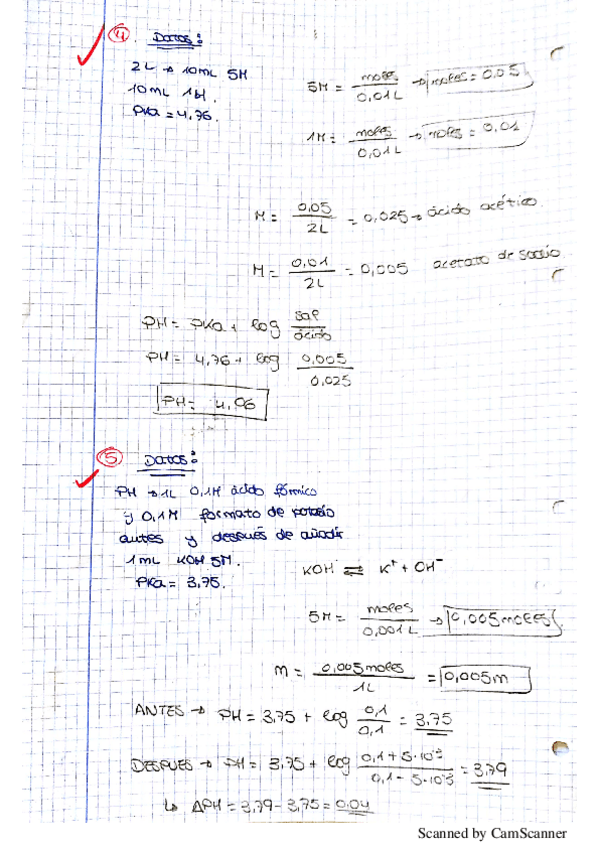 4. Datos:
2L → 10mL 5M
10mL 1M.
PKa = 4,76.
5M = moles / 0,01L → moles = 0,05
1M = moles / 0,01L → moles = 0,01
M = 0,05 / 2L = 0,025 → ácido acético.
M = 0,01 / 2L = 0,005 acetato de sodio
PH = PKa + log sal / ácido
PH = 4,76 + log 0,005 / 0,025
PH = 4,06
5. Datos:
PH → 1L 0,1M ácido fórmico
y 0,1M formato de potasio
antes y después de añadir
1mL KOH 5M.
PKa = 3,75.
KOH ⇌ K⁺ + OH⁻
5M = moles / 0,001L → 0,005 moles.
M = 0,005 moles / 1L = 0,005m
ANTES → PH = 3,75 + log 0,1 / 0,1 = 3,75
DESPUES → PH = 3,75 + log 0,1 + 5·10⁻³ / 0,1 - 5·10⁻³ = 3,79
↳ ΔPH = 3,79 - 3,75 = 0,04
Scanned by CamScanner